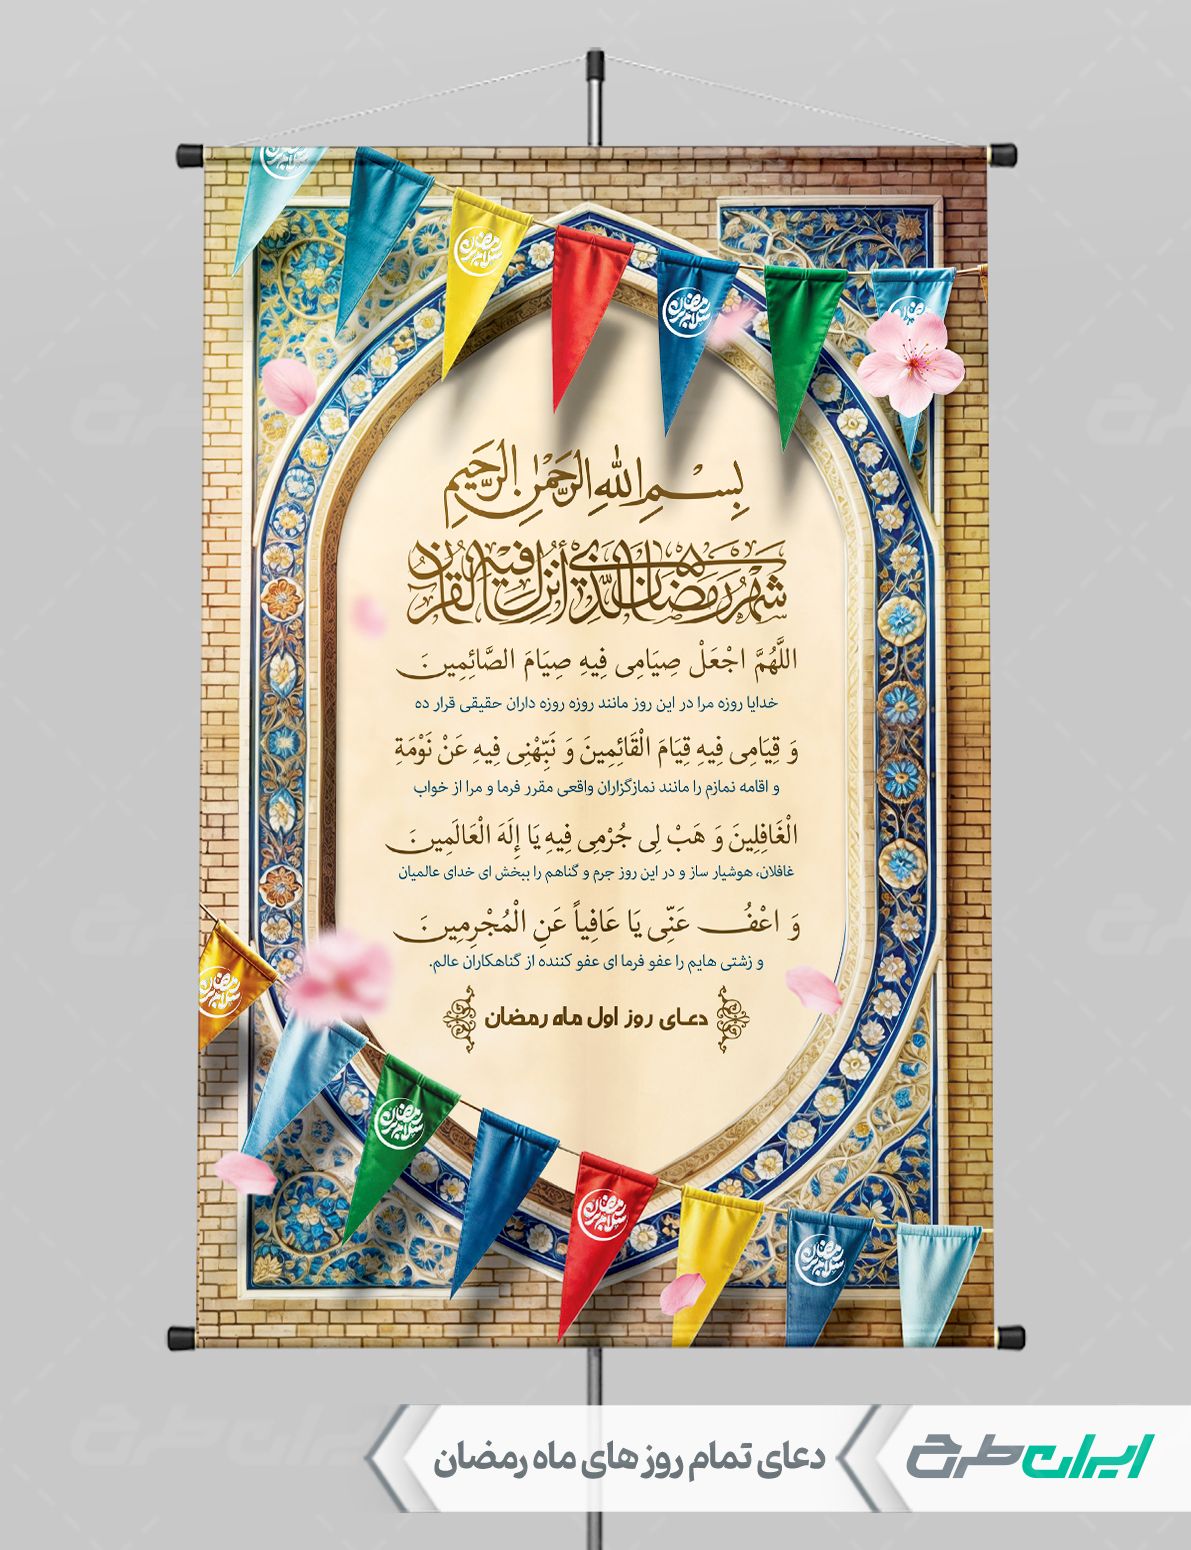 سلام بر رمضان
سلام بر رمضان
سلام بر رمضان
سلام بر رمضان
بِسْمِ اللهِ الرَّحْمٰنِ الرَّحِيمِ
شَهْرُ رَمَضَانَ الَّذِي أُنْزِلَ فِيهِ الْقُرْآنُ
اللَّهُمَّ اجْعَلْ صِيَامِی فِيهِ صِيَامَ الصَّائِمِينَ
خدایا روزه مرا در این روز مانند روزه روزه داران حقیقی قرار ده
وَ قِيَامِی فِيهِ قِيَامَ الْقَائِمِينَ وَ نَبِّهْنِی فِيهِ عَنْ نَوْمَةِ
و اقامه نمازم را مانند نمازگزاران واقعی مقرر فرما و مرا از خواب
الْغَافِلِينَ وَ هَبْ لِی جُرْمِی فِيهِ يَا إِلَهَ الْعَالَمِينَ
غافلان، هوشیار ساز و در این روز جرم و گناهم را ببخش ای خدای عالمیان
وَ اعْفُ عَنِّی يَا عَافِياً عَنِ الْمُجْرِمِينَ
و زشتی هایم را عفو فرما ای عفو کننده از گناهکاران عالم.
دعای روز اول ماه رمضان
سلام بر رمضان
سلام بر رمضان
سلام بر رمضان
سلام بر رمضان
ایران طرح
دعای تمام روز های ماه رمضان